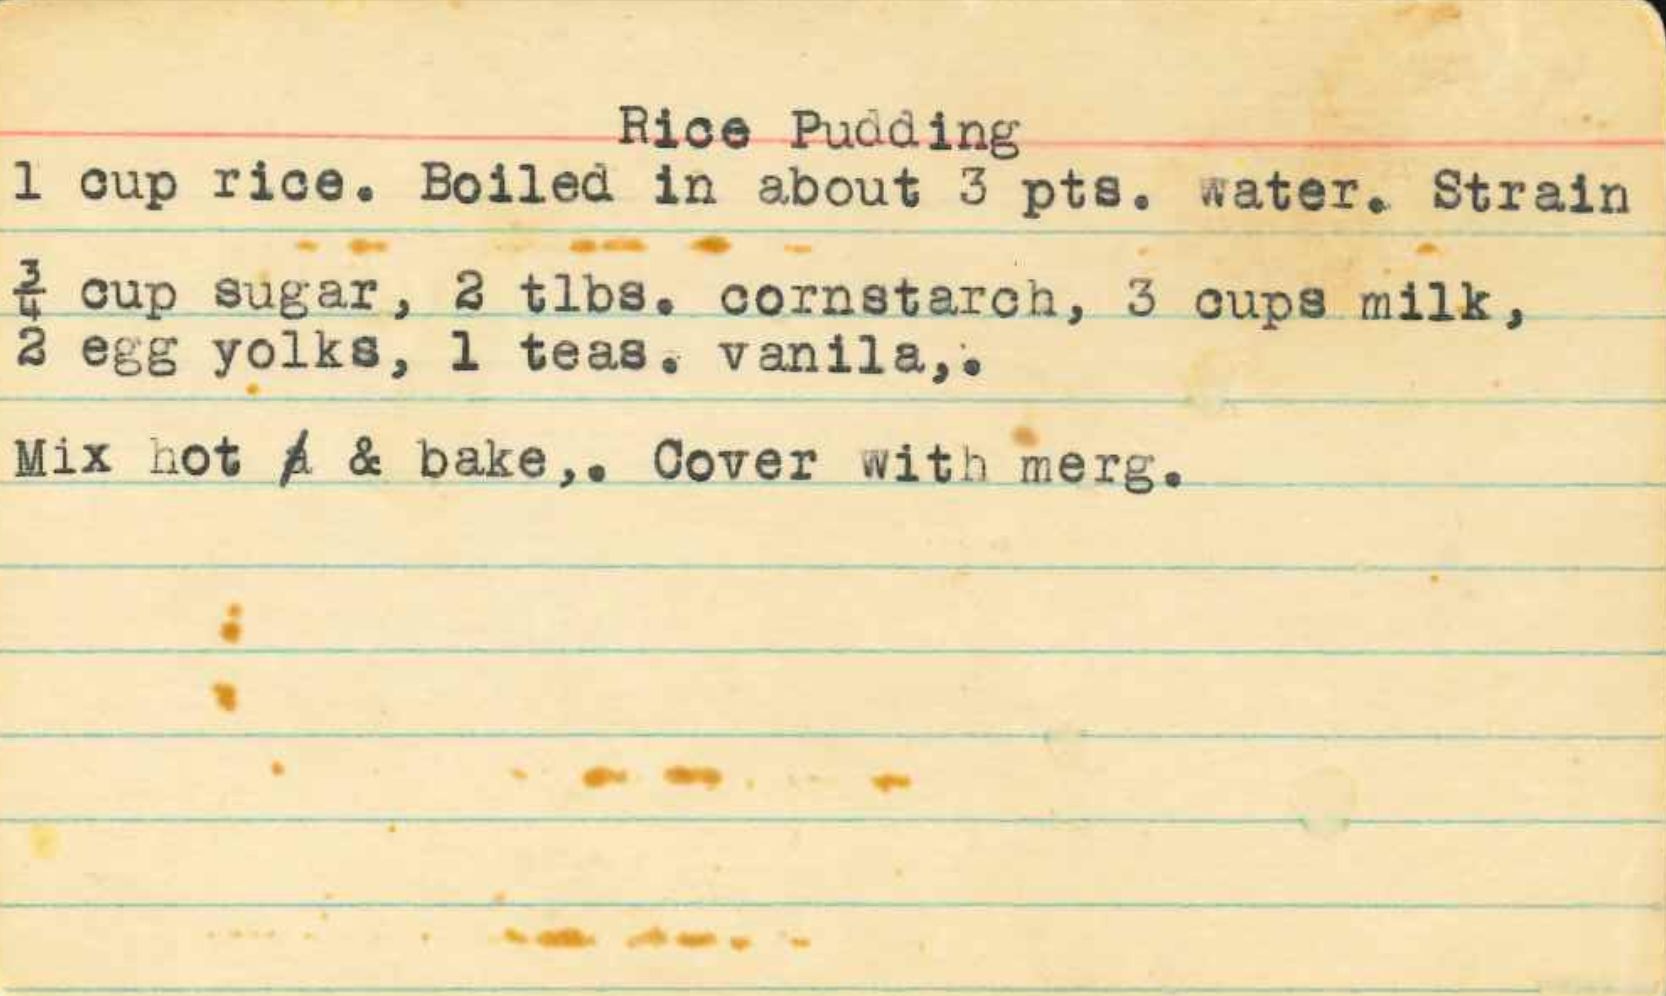 Rice Pudding
1 cup rice. Boiled in about 3 pts. water. Strain
¾ cup sugar, 2 tlbs. cornstarch, 3 cups milk,
2 egg yolks, 1 teas. vanila,.
Mix hot & bake,. Cover with merg.